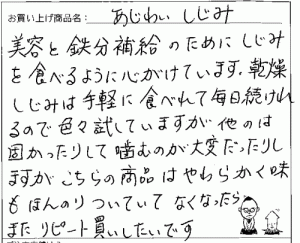 お買い上げ商品名： あじわい しじみ
美容と鉄分補給のためにしじみ
を食べるように心がけています。乾燥
しじみは手軽に食べれて毎日続けれ
るので色々試していますが他のは
固かったりして噛むのが大変だったりし
ますがこちらの商品はやわらかく味
もほんのりついていてなくなったら
またリピート買いしたいです